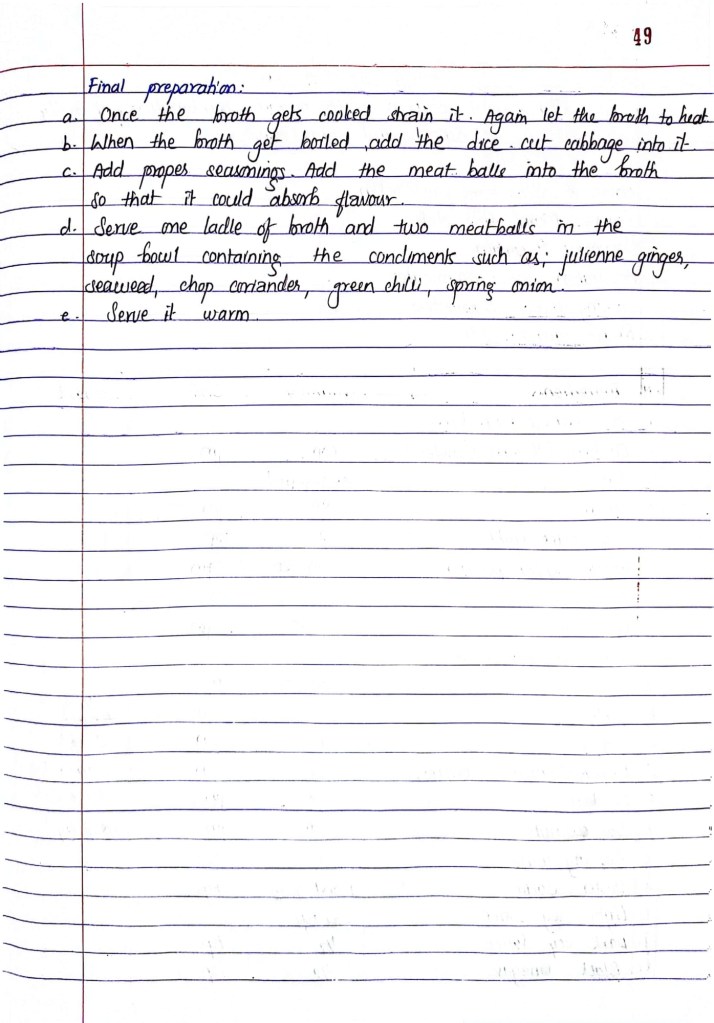 49
Final preparation:
a. Once the broth gets cooked strain it. Again let the broth to heat
b. When the broth get boiled, add the dice cut cabbage into it.
c. Add propes seasonings. Add the meat balls into the broth
so that it could absorb flavour.
d. Serve one ladle of broth and two meatballs in the
soup bowl containing the condiments such as; julienne ginger,
seaweed, chop coriander, green chilli, spring onion.
e. Serve it warm.